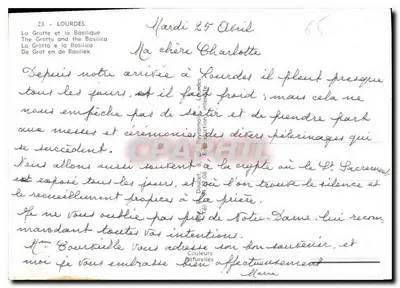 23 - LOURDES
La Grotte et la Basilique
The Grotto and the Basilica
La Grotta e la Basilica
De Grot en de Basiliek
65
Mardi 25 Avril
Ma chère Charlotte
Depuis notre arrivée à Lourdes il pleut presque
tous les jours, et il fait froid ; mais cela ne
nous empêche pas de sortir et de prendre part
aux messes et cérémonies des divers pèlerinages qui
se succèdent.
Nous allons aussi souvent à la crypte où le St Sacrement
est exposé tous les jours, et où l'on trouve le silence et
le recueillement propices à la prière.
Je ne vous oublie pas près de Notre-Dame lui recom,
mandant toutes vos intentions.
Mme vous adresse son bon souvenir, et
moi je vous embrasse bien affectueusement
Couleurs
Naturelles
CPAREFUL